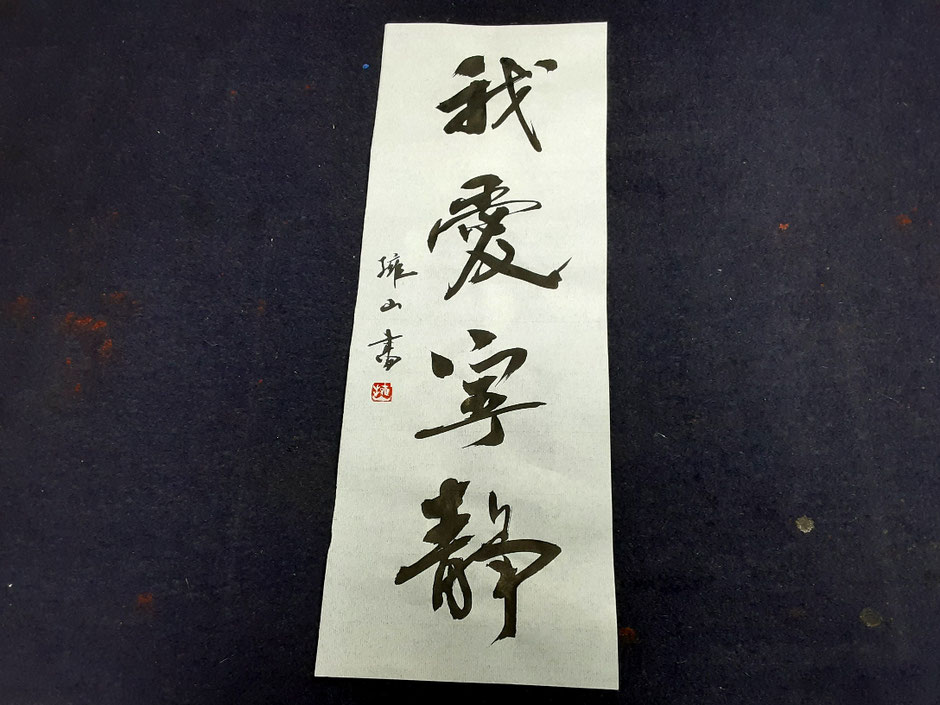 我愛寧靜
山書